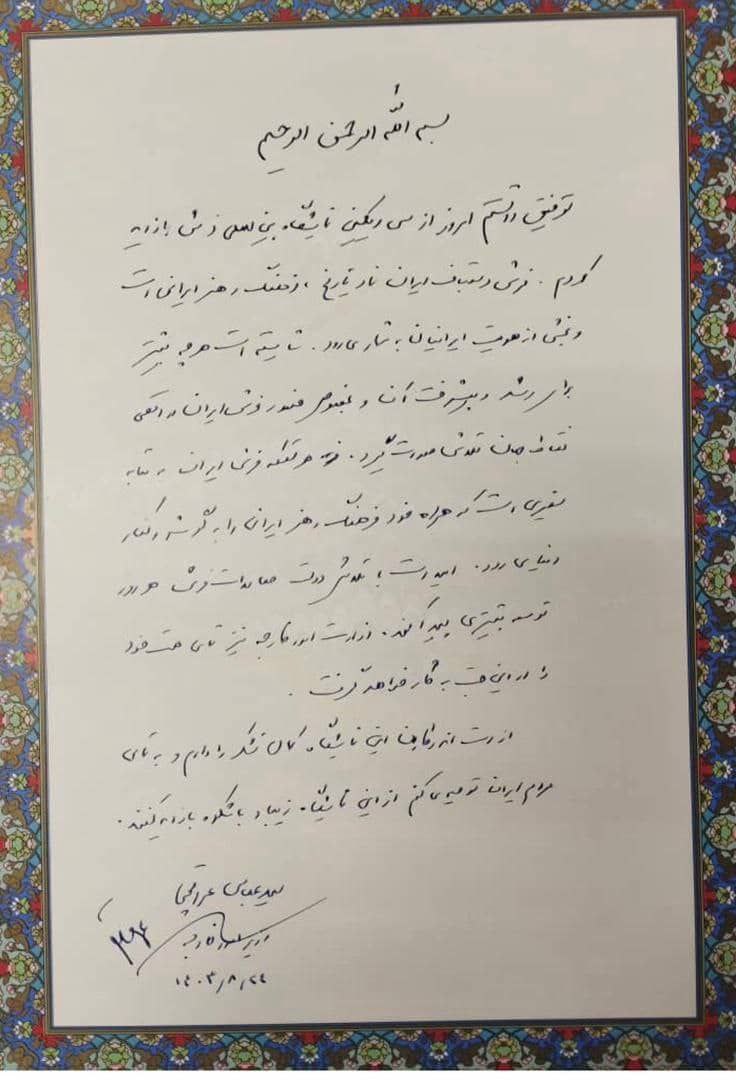 بسم الله الرحمن الرحیم
توفیق داشتم امروز از سی و یکمین نمایشگاه بین المللی فرش بازدید
کردم. فرش دستباف ایران نماد تاریخ، فرهنگ و هنر ایرانی است
و بخشی از هویت ایرانیان به شمار می‌رود. شایسته است هر چه بیشتر
برای رشد و پیشرفت آن و بخصوص حضور فرش ایران در اقصی
نقاط جهان تلاش صورت گیرد. هر تخته فرش ایران به مثابه
سفیری است که همراه خود فرهنگ و هنر ایرانی را به گوشه و کنار
دنیا می‌برد. امید است با تلاش دولت صادرات فرش هر روز
توسعه بیشتری پیدا کند. وزارت امور خارجه نیز تمامی همت خود
را در این جهت به کار خواهد گرفت.
از دست اندرکاران این نمایشگاه کمال تشکر را دارم و به تمامی
مردم ایران توصیه می‌کنم از این نمایشگاه زیبا و باشکوه بازدید کنند.
سید عباس عراقچی
وزیر امور خارجه
۱۴۰۳/۸/۲۴